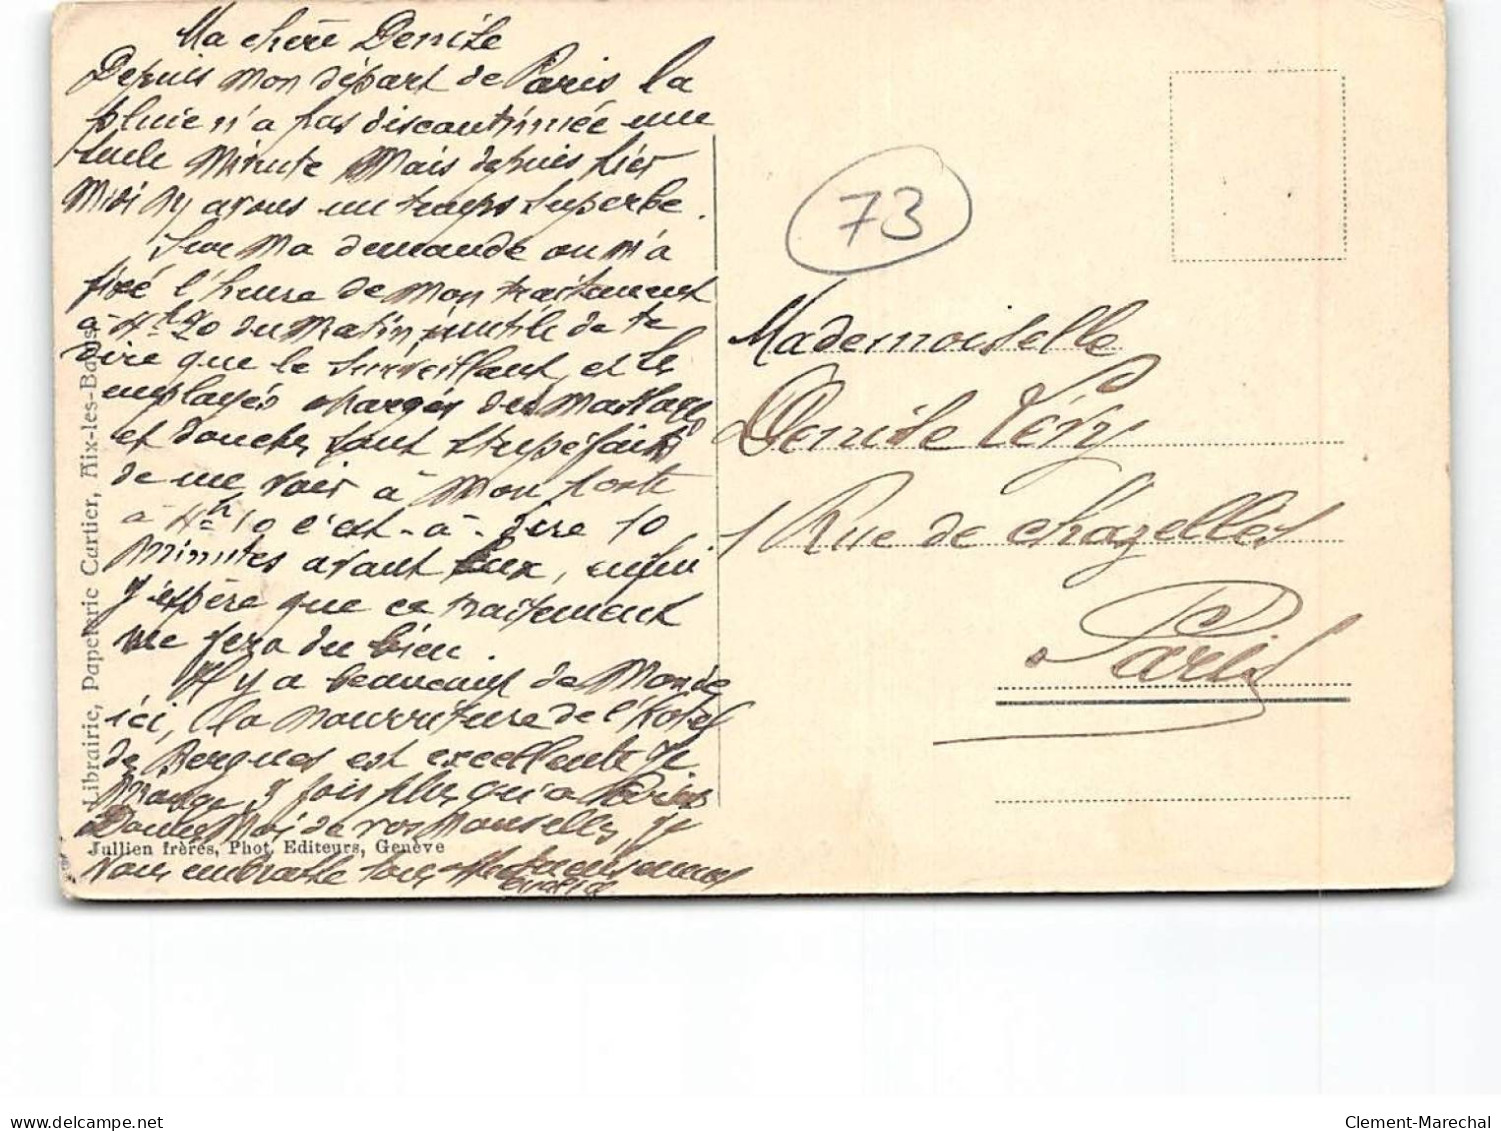 Ma chère Denise
Depuis mon départ de Paris la
pluie n'a pas discontinuée une
seule minute Mais depuis hier
Midi ny avons un temps superbe.
Sur ma demande on m'a
fixé l'heure de mon traitement
à 4h 20 du matin, inutile de te
dire que le surveillant, et les
employés chargés du massage
et douches sont stupéfaits
de me voir à mon poste
à 4h 10 c'est-à-dire 10
minutes avant eux, enfin
j'espère que ce traitement
me fera du bien.
Il y a beaucoup de Monde
ici, la nourriture de l'Hotel
de Bergues est excellente je
mange 3 fois plus qu'à Paris
Donnez Moi de vos Nouvelles, Je
vous embrasse tous
Librairie, Papeterie Cartier, Aix-les-Bains
Jullien frères, Phot. Editeurs, Genève
73
Mademoiselle
Denise Lévy
1 Rue de Chazelles
Paris
delcampe.net
Clement-Marechal